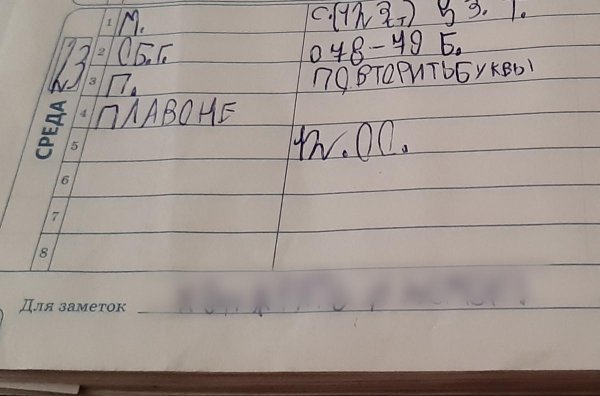 СРЕДА
23
1 М.
2 С.Б.Г. 078-79 Б.
3 П. ПОВТОРИТЬ БУКВЫ
4 ПЛАВОНЕ
5 12.00.
6
7
8
Для заметок